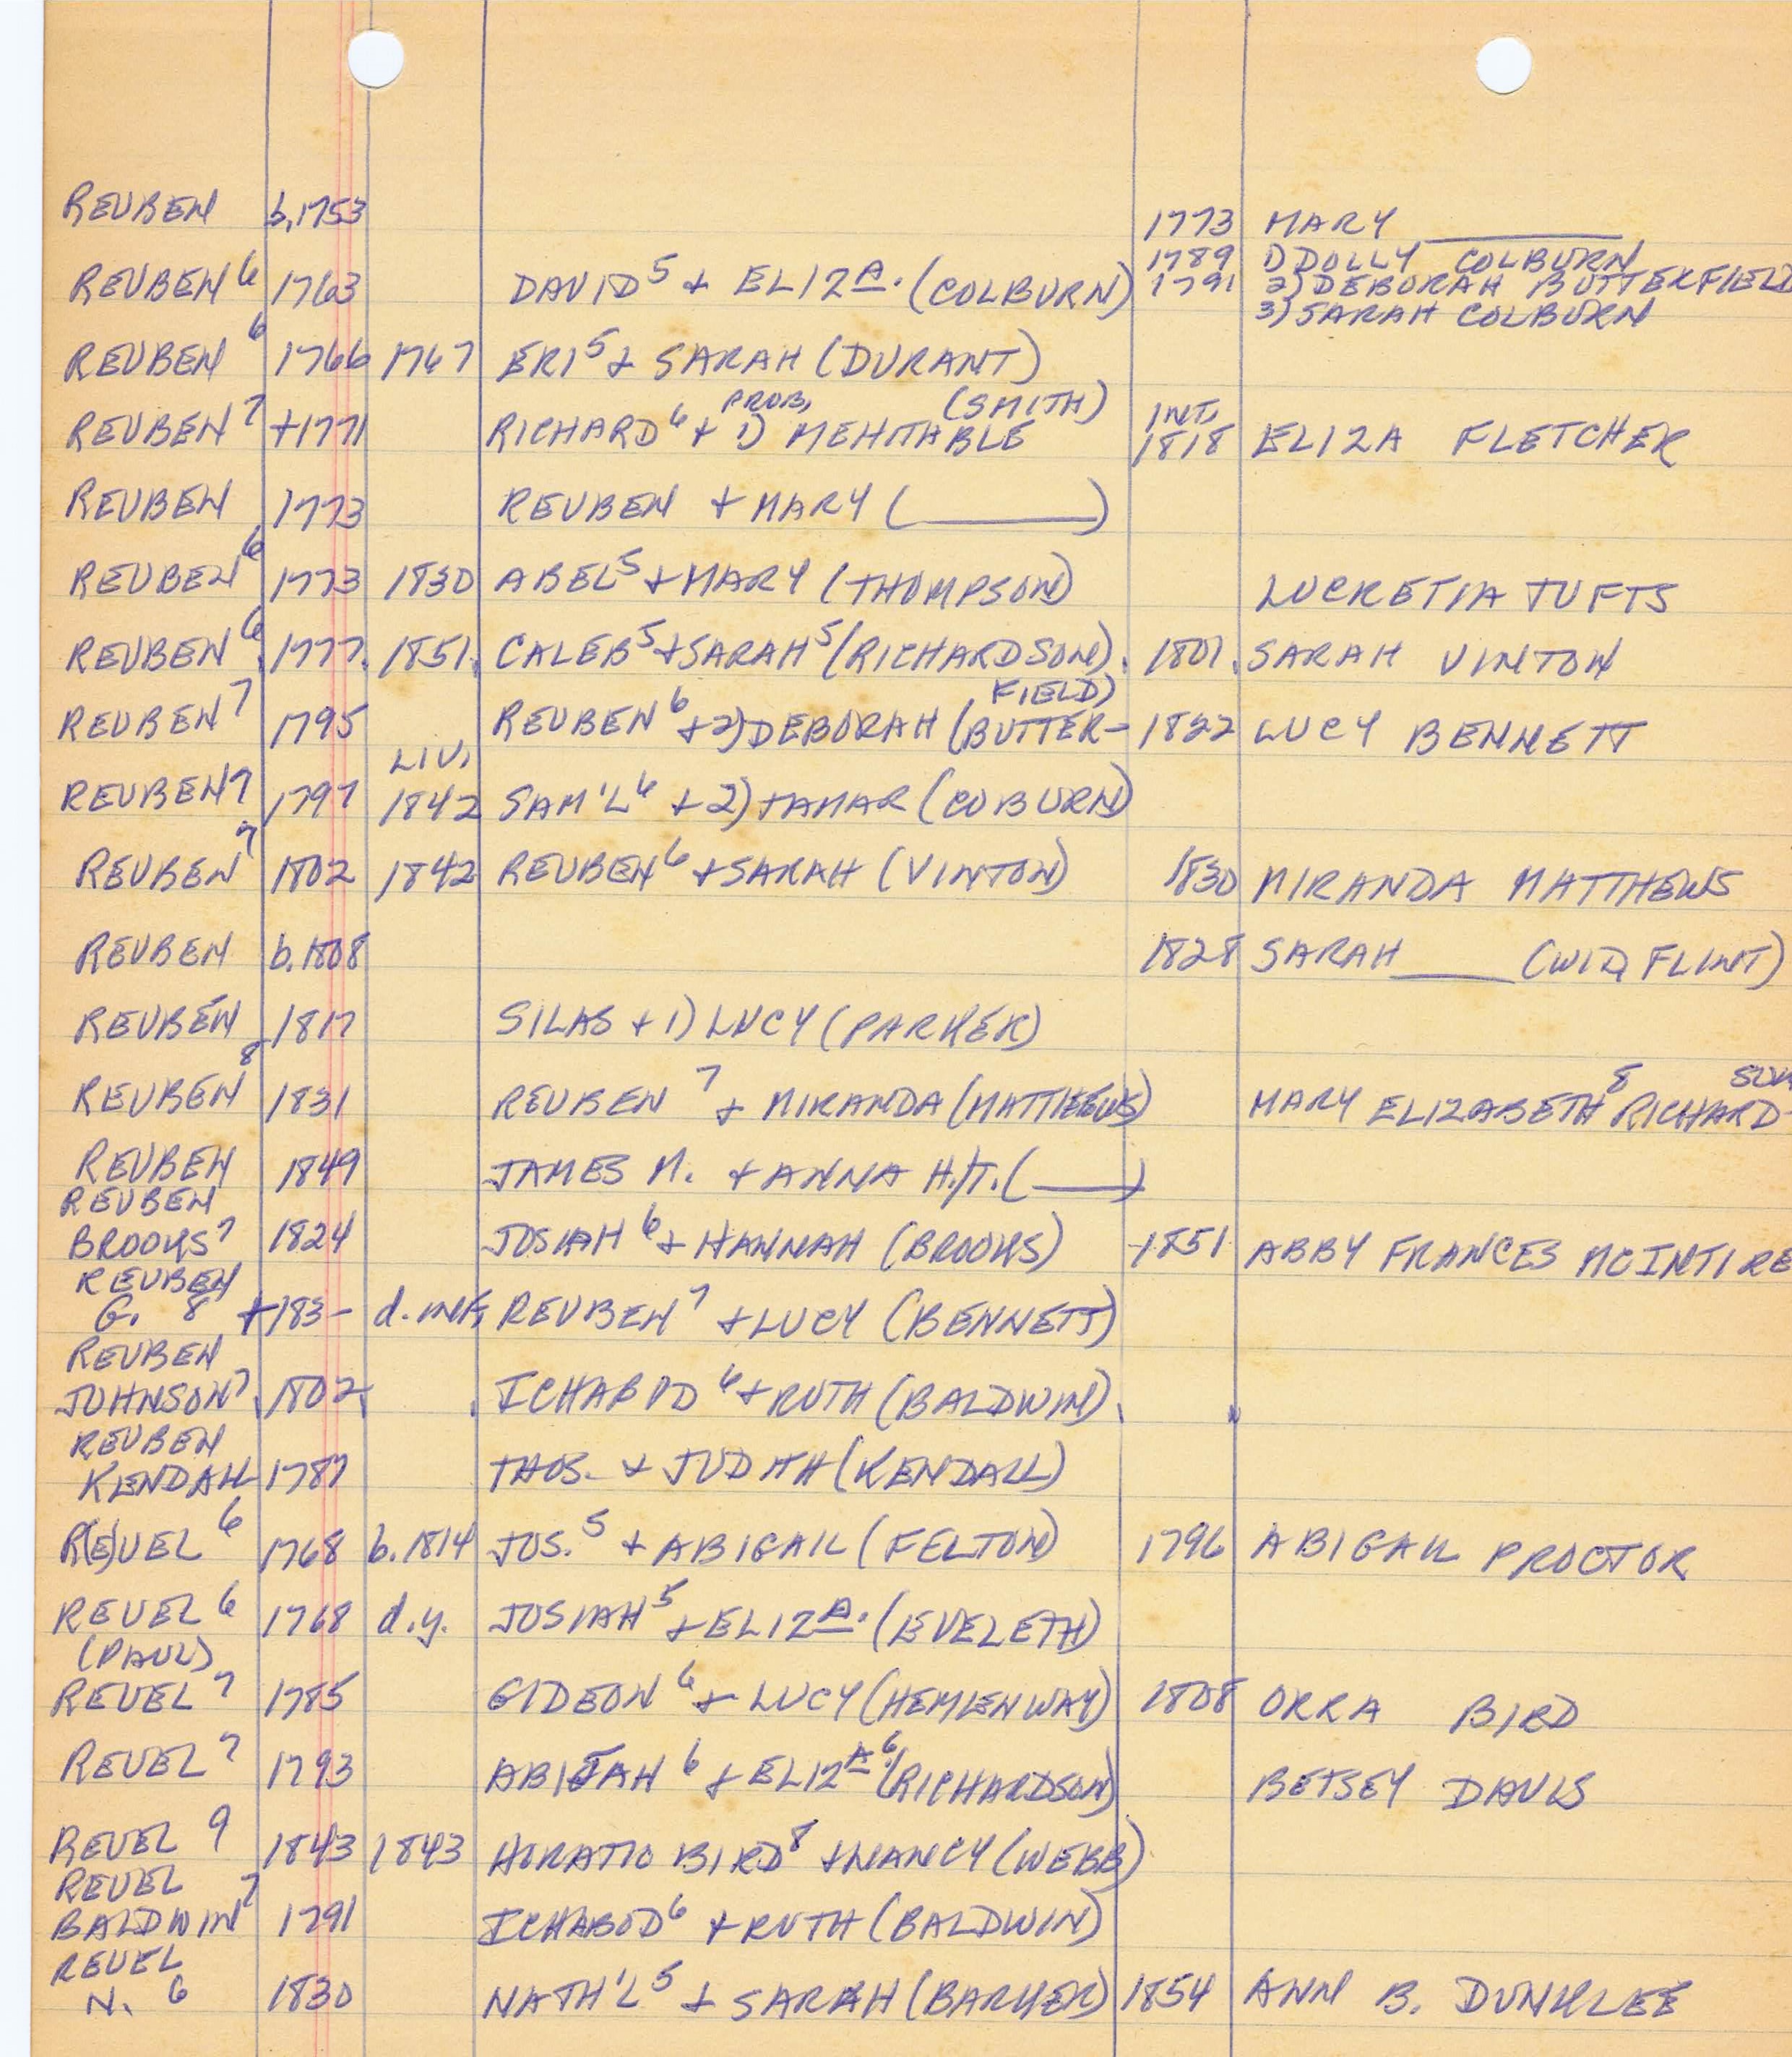 REUBEN b.1753 1773 MARY ______
1789 1) DOLLY COLBURN
REUBEN 6 1763 DAVID 5 + ELIZA. (COLBURN) 1791 2) DEBORAH BUTTERFIELD
3) SARAH COLBURN
REUBEN 6 1766 1767 ERI 5 + SARAH (DURANT)
PROB. (SMITH) INT.
REUBEN 7 +1771 RICHARD 6 + 1) MEHITABLE 1818 ELIZA FLETCHER
REUBEN 1773 REUBEN + MARY (______)
REUBEN 6 1773 1830 ABEL 5 + MARY (THOMPSON) LUCRETIA TUFTS
REUBEN 6. 1777. 1851. CALEB 5 + SARAH 5 (RICHARDSON). 1801. SARAH VINTON
FIELD)
REUBEN 7 1795 REUBEN 6 + 2) DEBORAH (BUTTER- 1822 LUCY BENNETT
LIV.
REUBEN 7 1797 1842 SAM'L 6 + 2) TAMAR (COBURN)
REUBEN 7 1802 1842 REUBEN 6 + SARAH (VINTON) 1830 MIRANDA MATTHEWS
REUBEN b.1808 1828 SARAH ____ (WID. FLINT)
REUBEN 1817 SILAS + 1) LUCY (PARKER)
SON
REUBEN 8 1831 REUBEN 7 + MIRANDA (MATTHEWS) MARY ELIZABETH 8 RICHARD-
REUBEN 1849 JAMES M. + ANNA H.T. (____)
REUBEN
BROOKS 7 1824 JOSIAH 6 + HANNAH (BROOKS) 1851 ABBY FRANCES MCINTIRE
REUBEN
G. 8 +183- d. INF. REUBEN 7 + LUCY (BENNETT)
REUBEN
JOHNSON 7. 1802. . ICHABOD 6 + RUTH (BALDWIN). .
REUBEN
KENDALL 1787 THOS. + JUDITH (KENDALL)
R(E)UEL 6 1768 b.1814 JOS. 5 + ABIGAIL (FELTON) 1796 ABIGAIL PROCTOR
REUEL 6 1768 d.y. JOSIAH 5 + ELIZA. (EVELETH)
(PAUL)
REUEL 7 1785 GIDEON 6 + LUCY (HEMENWAY) 1808 ORRA BIRD
REUEL 7 1793 ABIJAH 6 + ELIZA 6 (RICHARDSON) BETSEY DAVIS
REUEL 9 1843 1843 HORATIO BIRD 8 + NANCY (WEBB)
REUEL
BALDWIN 7 1791 ICHABOD 6 + RUTH (BALDWIN)
REUEL
N. 6 1830 NATH'L 5 + SARAH (BARKER) 1854 ANN B. DUNKLEE